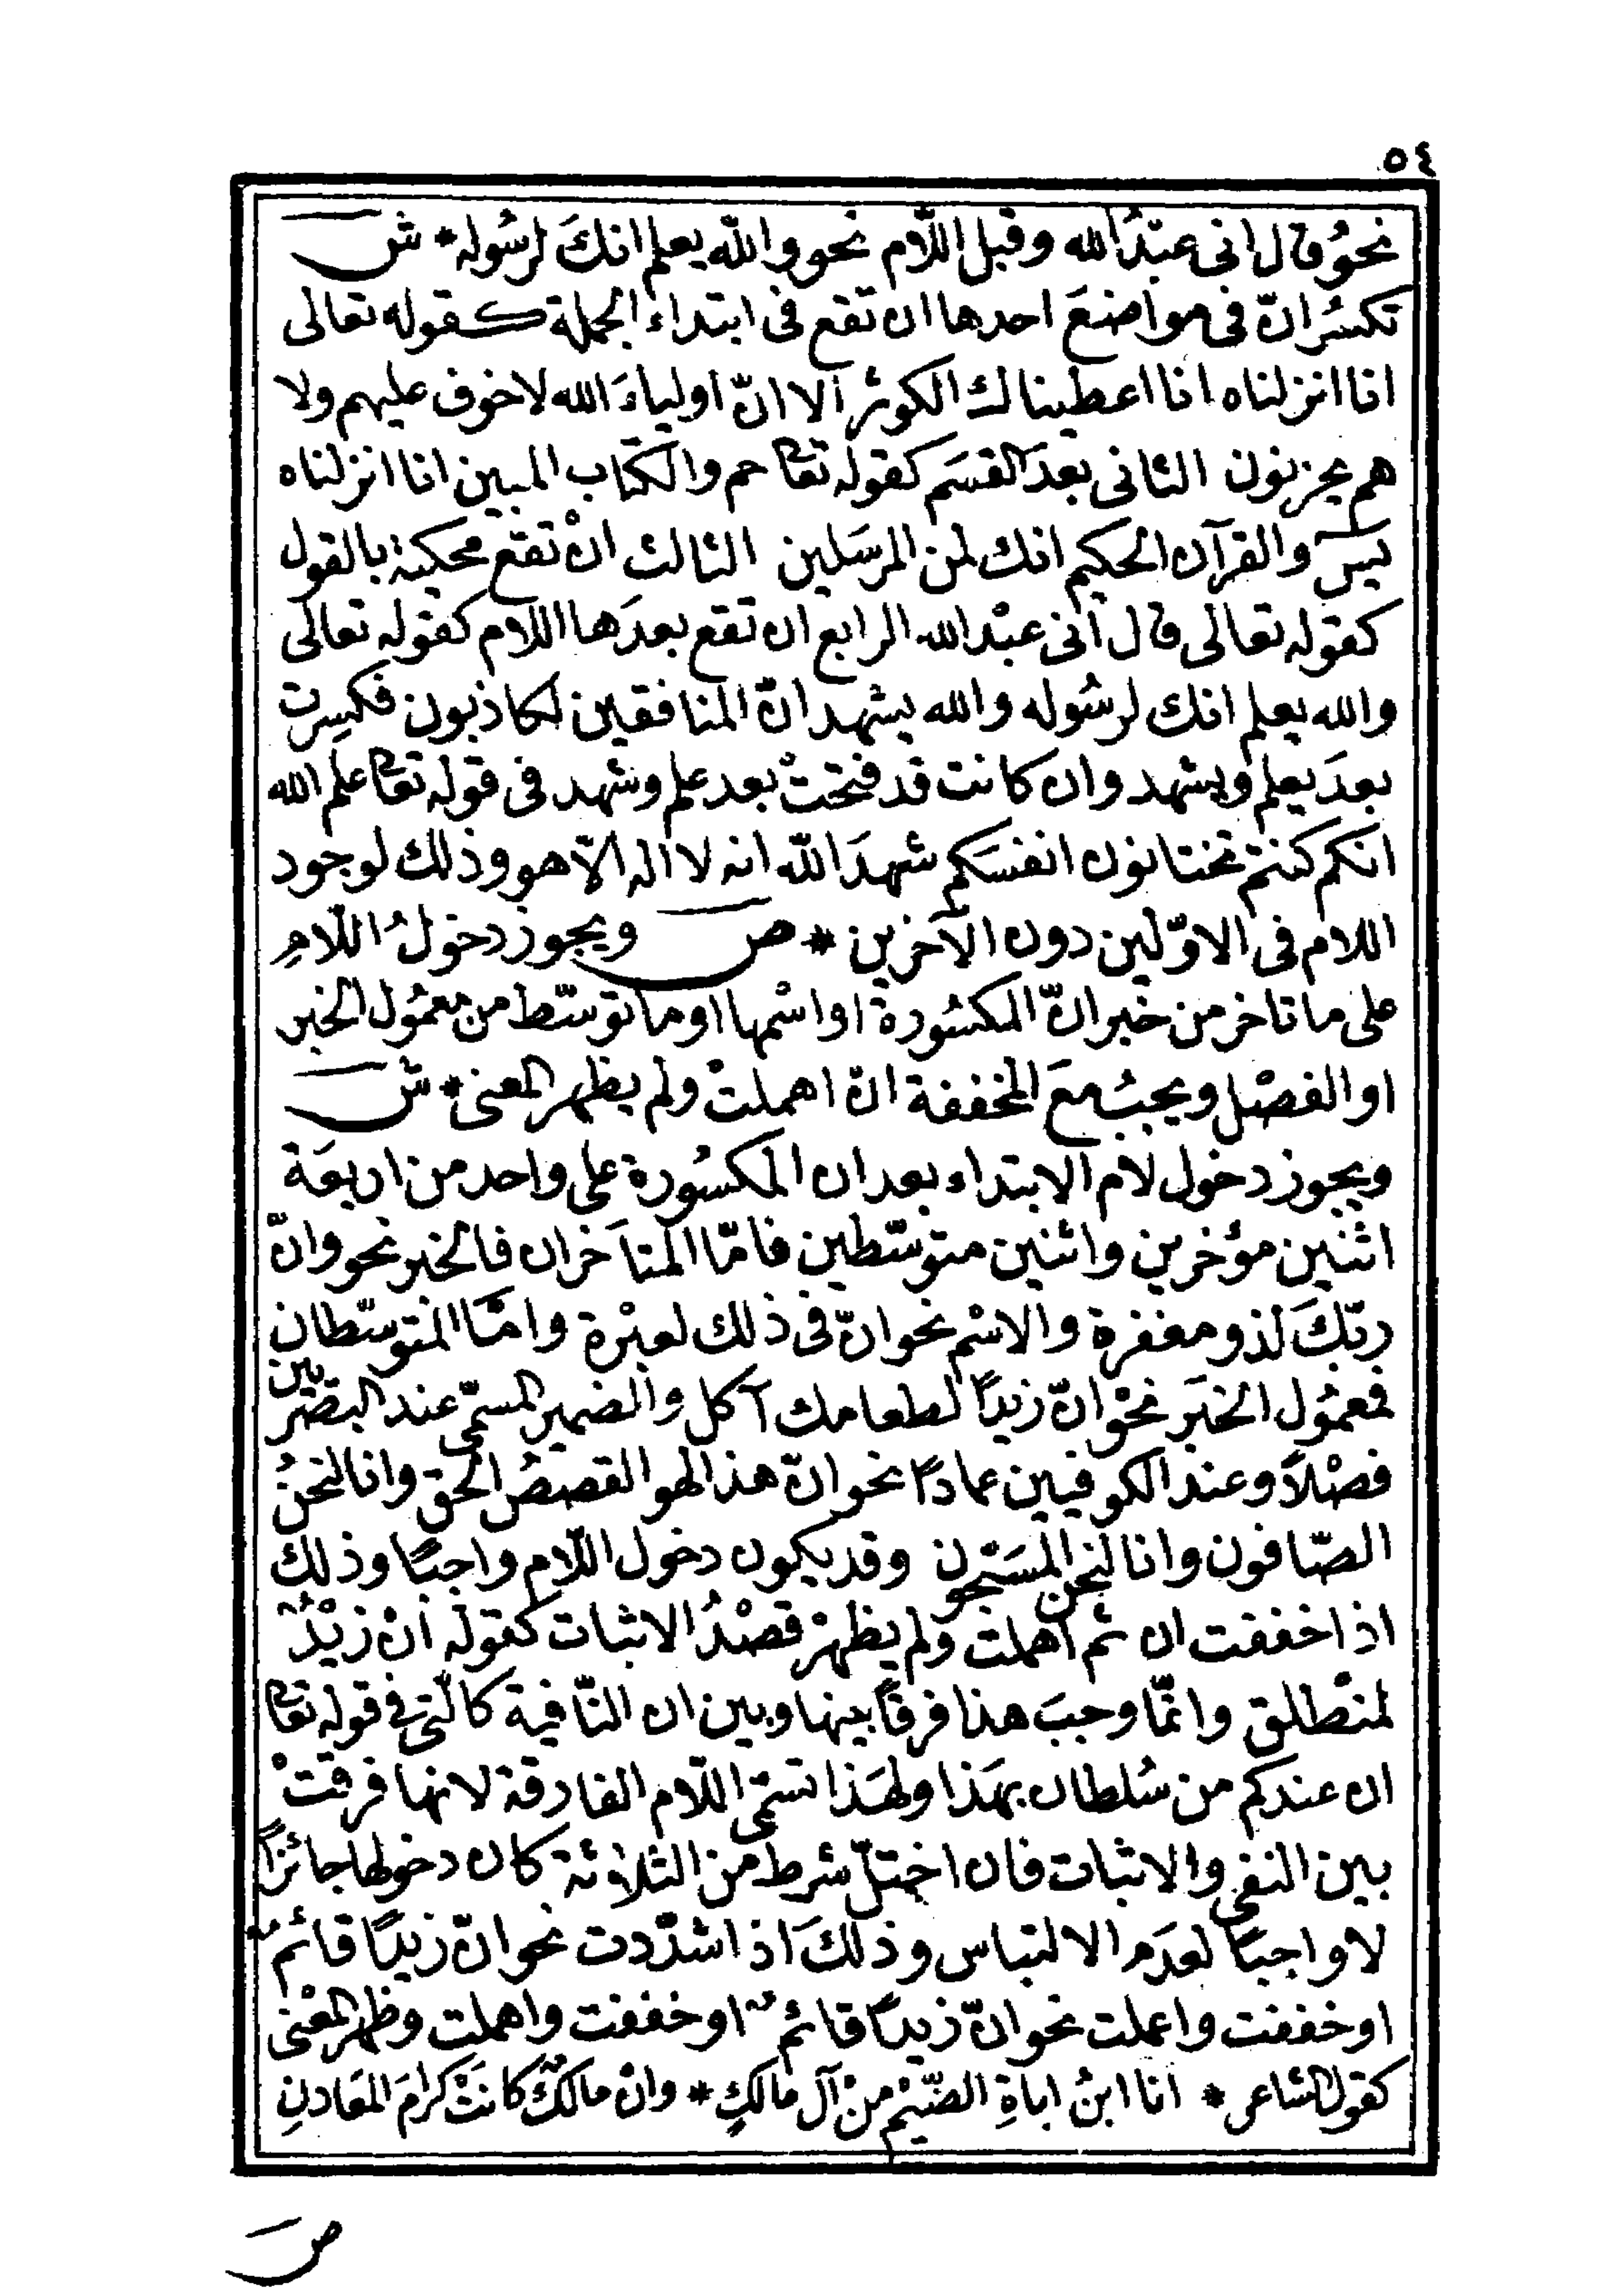 ٥٤
نحوُ قال انى عبْدُ الله وقبل اللّام نحو والله يعلم انكَ لرسُوله * ش
تكسَرُ انّ فى مواضعَ احدها ان تقع فى ابتداء الجملة كقوله تعالى
انا انزلناه انا اعطيناك الكوثر الا انّ اولياءَ الله لا خوف عليهم ولا
هم يحزنون الثانى بعدَ القسَم كقوله تعا حم والكتاب المبين انا انزلناه
يسٓ والقرآن الحكيم انك لمن المرسَلين الثالث انْ تقع محكية بالقول
كقوله تعالى قال انى عبْد الله الرابع ان تقع بعدَها اللام كقوله تعالى
والله يعلم انك لرسُوله والله يشهد انّ المنافقين لكاذبون فكسِرت
بعدَ يعلم ويشهد وان كانت قد فتحتْ بعد علم وشهد فى قوله تعا علم الله
انكم كنتم تختانون انفسَكم شهدَ الله انه لا اله الّا هو وذلك لوجود
اللام فى الاوّلين دون الآخرين * ص ويجوز دخولُ اللّامِ
على ما تاخر من خبر انّ المكسُورة او اسْمها او ما توسّط من معمُول الخبر
او الفصْل ويجبُ معَ المخففة انْ اهملتْ ولم يظهر المعنى * ش
ويجوز دخول لام الابتداء بعد ان المكسُورة على واحد من اربعَة
اثنين مؤخرين واثنين متوسّطين فامّا المتأخران فالخبر نحو وانّ
ربّكَ لذو مغفرة والاسْم نحو انّ فى ذلك لعبْرة وامّا المتوسّطان
فمعمُول الخبَر نحْو انّ زيدًا لطعامك آكل والضمير المسمّى عند البصْريين
فصْلاً وعند الكوفيين عمادًا نحو انّ هذا لهو القصصُ الحق وانا لنحنُ
الصّافون وانا لنحن المسَبّحون وقد يكون دخول اللّام واجبًا وذلك
اذا خففت ان ثم اهملت ولم يظهرْ قصْدُ الاثبات كقوله انْ زيْدٌ
لمنْطلق وانّما وجبَ هذا فرقًا بينها وبين ان النّافية كالّتى فى قوله تعا
ان عندكم من سُلطان بهَذا ولهَذا تسمّى اللّام الفارقة لانها فرقتْ
بين النفى والاثبات فان اختلّ شرط من الثلاثة كان دخولها جائزًا
لا واجبًا لعدَم الالتباس وذلكَ اذا شدّدت نحو انّ زيدًا قائمٌ
او خففت واعملت نحو انْ زيدًا قائمٌ او خففت واهملت وظهر المعْنى
كقول الشاعر * انا ابنُ اباةِ الضّيْم منْ آل مالكٍ * وانْ مالكٌ كانَتْ كرامَ المعَادنِ
ص